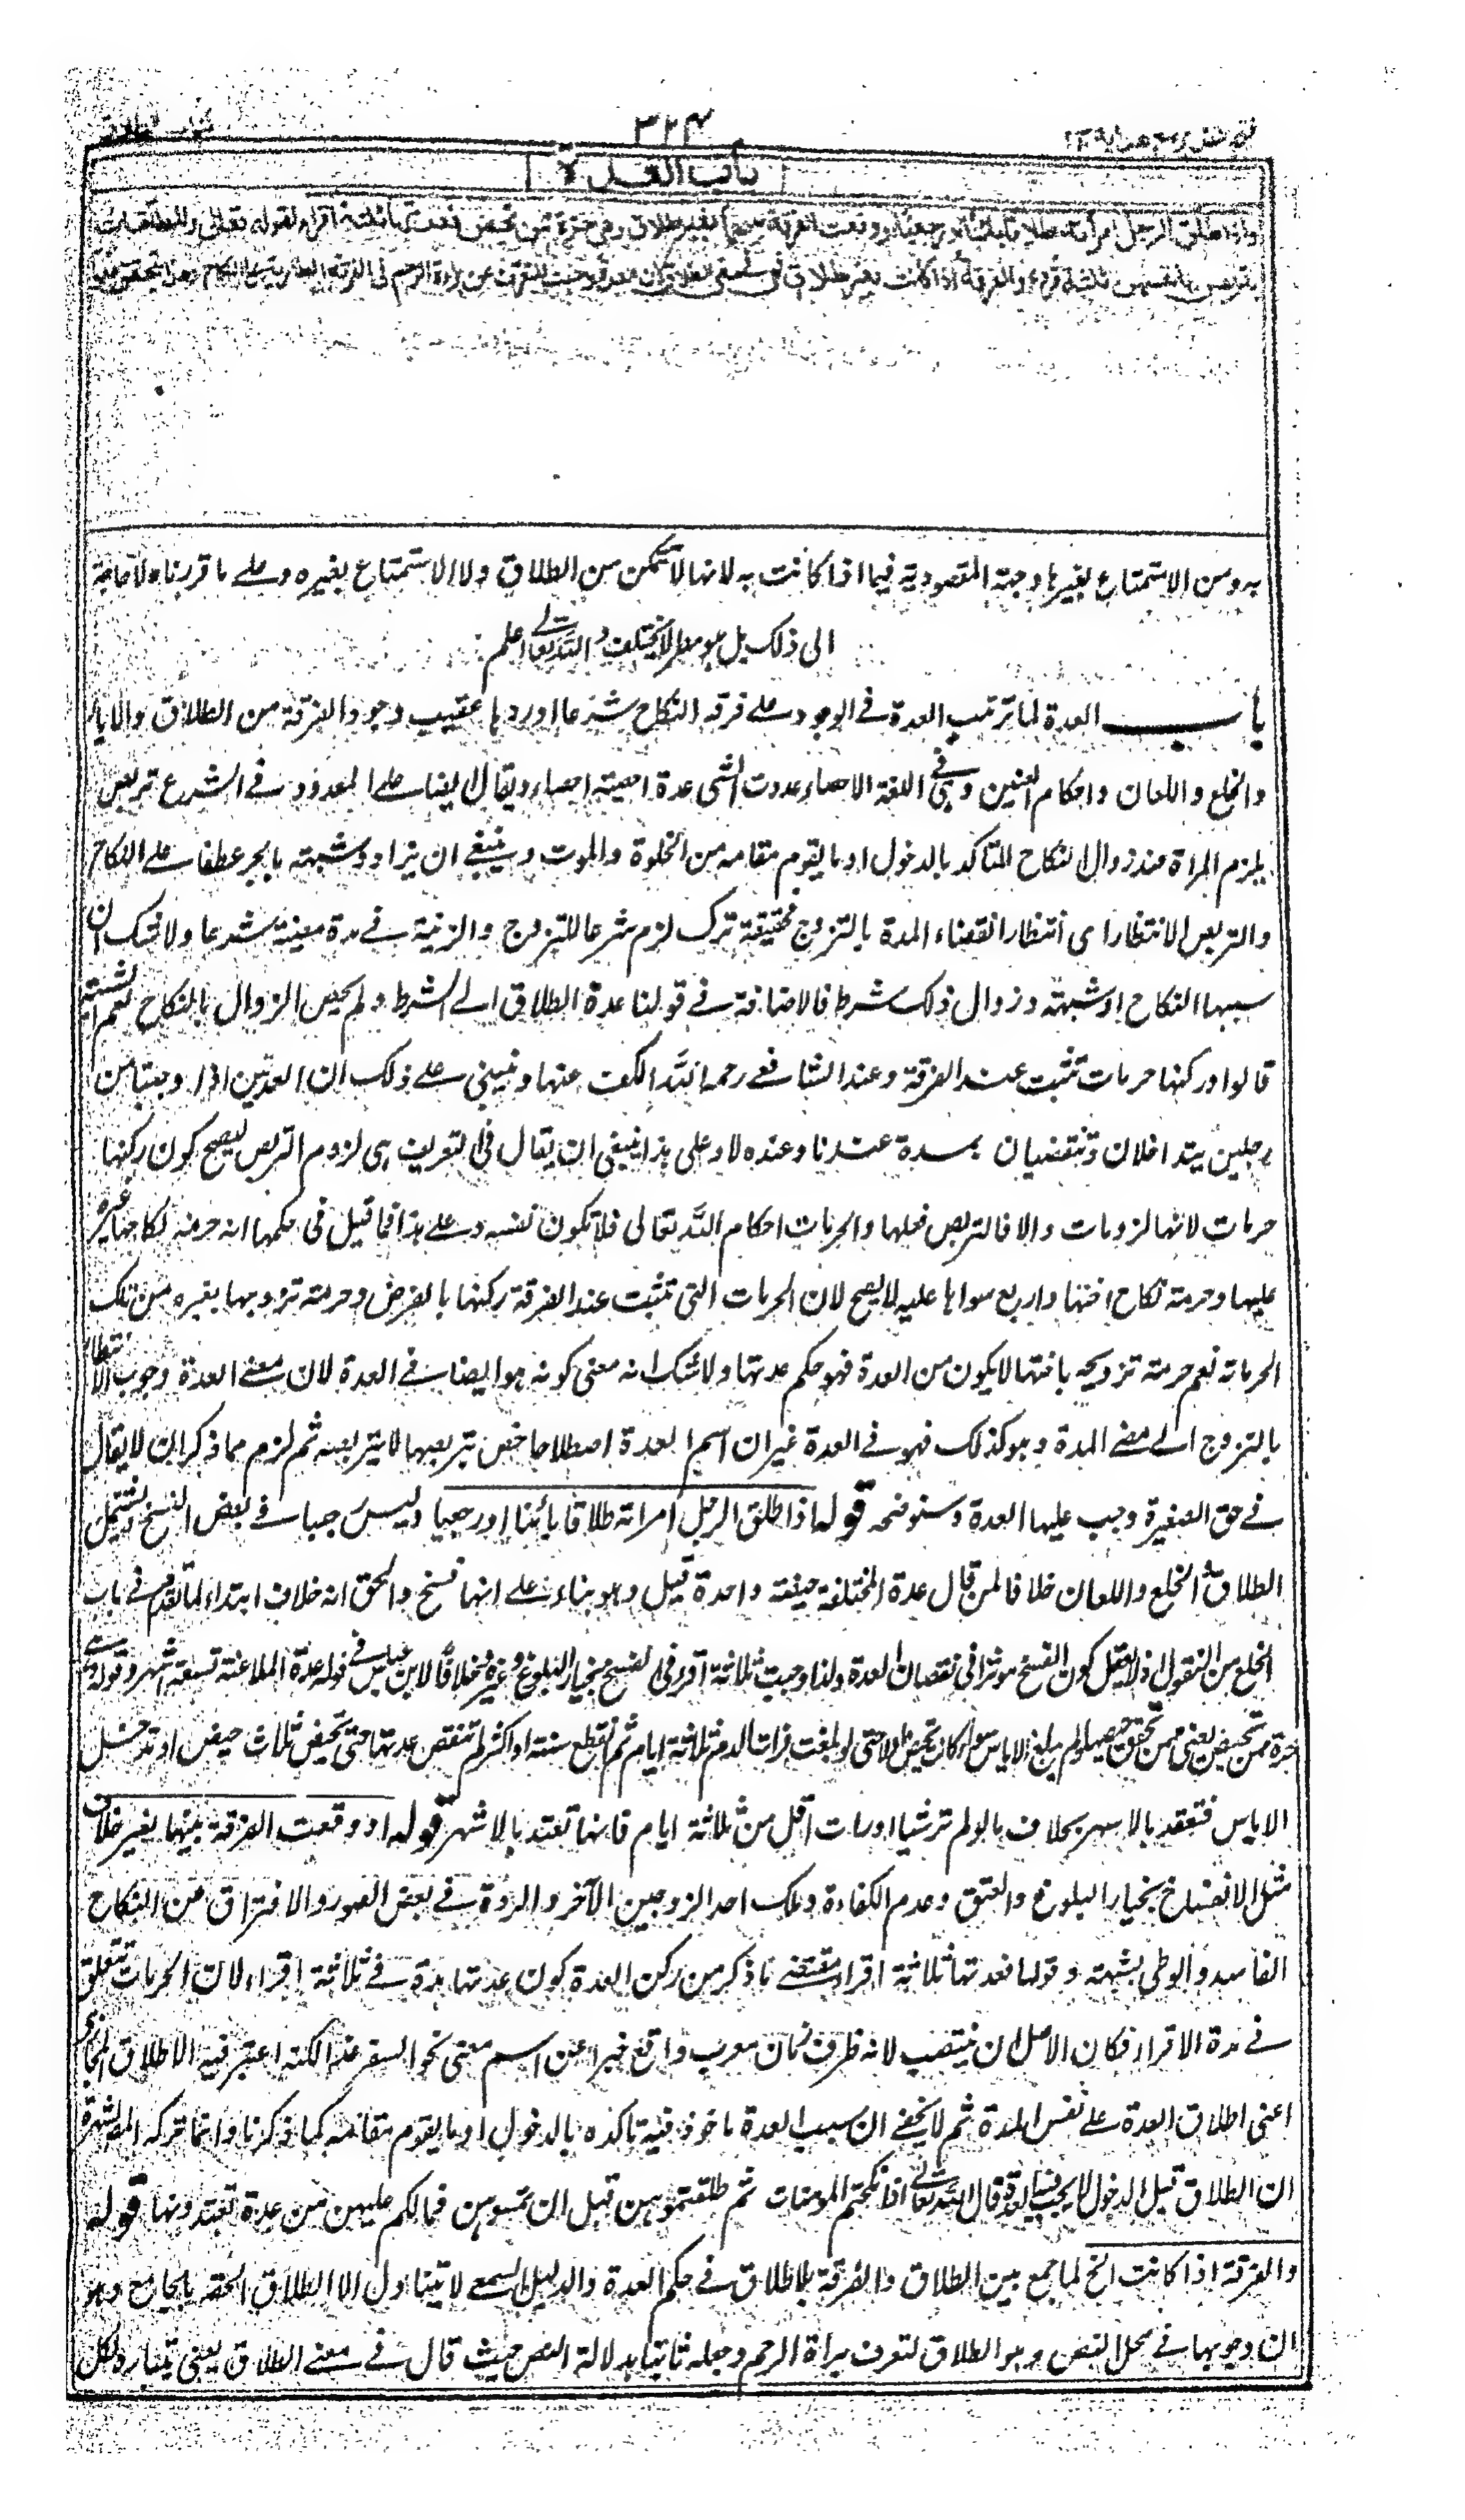 ٣٢٤
باب العدة
واذا طلق الرجل امرأته طلاقا بائنا او رجعيا او وقعت الفرقة بينهما بغير طلاق وهي حرة ممن تحيض فعدتها ثلثة اقراء لقوله تعالى والمطلقات
يتربصن بانفسهن ثلثة قروء والفرقة اذا كانت بغير طلاق فهي في معنى الطلاق لان العدة وجبت للتعرف عن براءة الرحم في الفرقة الطارية على النكاح وهذا يتحقق فيها
به ومن الاستمتاع بغيرها وجهة المقصودية فيما اذا كانت به لانها لا تتمكن من الطلاق ولا الاستمتاع بغيره وعلى ما قررناه لا حاجة
الى ذلك بل هو مطرد لا يختلف والله تعالى اعلم
باب العدة لما ترتب العدة في الوجود على فرقة النكاح شرعا اوردها عقيب وجود الفرقة من الطلاق والايلاء
والخلع واللعان واحكام العنين وهي في اللغة الاحصاء عددت الشئ عدة احصيته احصاء ويقال ايضا على المعدود وفي الشرع تربص
يلزم المرأة عند زوال النكاح المتاكد بالدخول او ما يقوم مقامه من الخلوة والموت وينبغي ان يزاد وشبهته بالجر عطفا على النكاح
والتربص الانتظار اى انتظار انقضاء المدة بالتزوج فحقيقته ترك لزم شرعا للتزوج والزينة في مدة معينة شرعا ولا شك ان
سببها النكاح او شبهته وزوال ذلك شرط فالاضافة في قولنا عدة الطلاق الى الشرط ولم يخص الزوال بالنكاح نعم الشبهة
قالوا وركنها حرمات تثبت عند الفرقة وعند الشافعي رحمه الله الكف عنها وينبني على ذلك ان العدتين اذا وجبتا من
رجلين يتداخلان وتنقضيان بمدة عندنا وعنده لا وعلى هذا ينبغي ان يقال في التعريف هى لزوم التربص ليصح كون ركنها
حرمات لانها لزومات والا فالتربص فعلها والحرمات احكام الله تعالى فلا تكون نفسه وعلى هذا فما قيل فى حكمها انه حرمة نكاحها غيره
عليها وحرمة نكاح اختها واربع سواها عليه لا يصح لان الحرمات التى تثبت عند الفرقة ركنها بالفرض وحرمة تزوجها بغيره من تلك
الحرمات نعم حرمة تزويجه باختها لا يكون من العدة فهو حكم عدتها ولا شك انه معنى كونه هو ايضا في العدة لان معنى العدة وجوب الانتظار
بالتزوج الى مضى المدة وهو كذلك فهو فى العدة غير ان اسم العدة اصطلاحا خص بتربصها لا بتربصه ثم لزم مما ذكر ان لا يقال
في حق الصغيرة وجب عليها العدة وسنوضحه قوله اذا طلق الرجل امرأته طلاقا بائنا او رجعيا وليس رجعيا في بعض النسخ ليشتمل
الطلاق الخلع واللعان خلافا لمن قال عدة المختلعة حيضة واحدة قيل وهو بناء على انها فسخ والحق انه خلاف ابتداء لما تقدم في باب
الخلع من المنقول اذ لا يعقل كون الفسخ موثرا فى نقصان العدة ولذا وجبت ثلاثة اقراء فى الفسخ بخيار البلوغ وغيره وخلافا لابن عباس في قوله عدة الملاعنة تسعة اشهر وقوله وهى
حرة ممن تحيض يعنى ممن تحقق حيضها ولم يبلغ الاياس سواء كان تحيض اولا حتى لو بلغت فرأت الدم ثلاثة ايام ثم انقطع سنة او اكثر لم تنقض عدتها حتى تحيض ثلاث حيض او تدخل
الاياس فتعتد بالاشهر بخلاف ما لو لم تر شيا او رات اقل من ثلاثة ايام فانها تعتد بالاشهر قوله او وقعت الفرقة بينهما بغير طلاق
مثل الانفساخ بخيار البلوغ والعتق وعدم الكفاءة وملك احد الزوجين الآخر والردة في بعض الصور والافتراق من النكاح
الفاسد والوطى بشبهة وقولها فعدتها ثلاثة اقراء مقتضى ما ذكر من ركن العدة كون عدتها مدة في ثلاثة اقراء لان الحرمات تتعلق
في مدة الاقراء فكان الاصل ان ينتصب لانه ظرف زمان معرب واقع خبرا عن اسم معنى نحو السفر غدا لكنه اعتبر فيه الاطلاق المجازى
اعنى اطلاق العدة على نفس المدة ثم لا يخفى ان سبب العدة ماخوذ فيه تاكده بالدخول او ما يقوم مقامه كما ذكرنا وانما تركه المص لشهرة
ان الطلاق قبل الدخول لا يجب فيه العدة قال الله تعالى اذا نكحتم المومنات ثم طلقتموهن من قبل ان تمسوهن فما لكم عليهن من عدة تعتدونها قوله
والفرقة اذا كانت الخ لما جمع بين الطلاق والفرقة بلا طلاق في حكم العدة والدليل السمعي لا يتناول الا الطلاق الحقه بالجامع وهو
ان وجوبها في محل النص وهو الطلاق لتعرف براءة الرحم وجعله ثابتا بدلالة النص حيث قال في معنى الطلاق يعنى يتبادر لكل